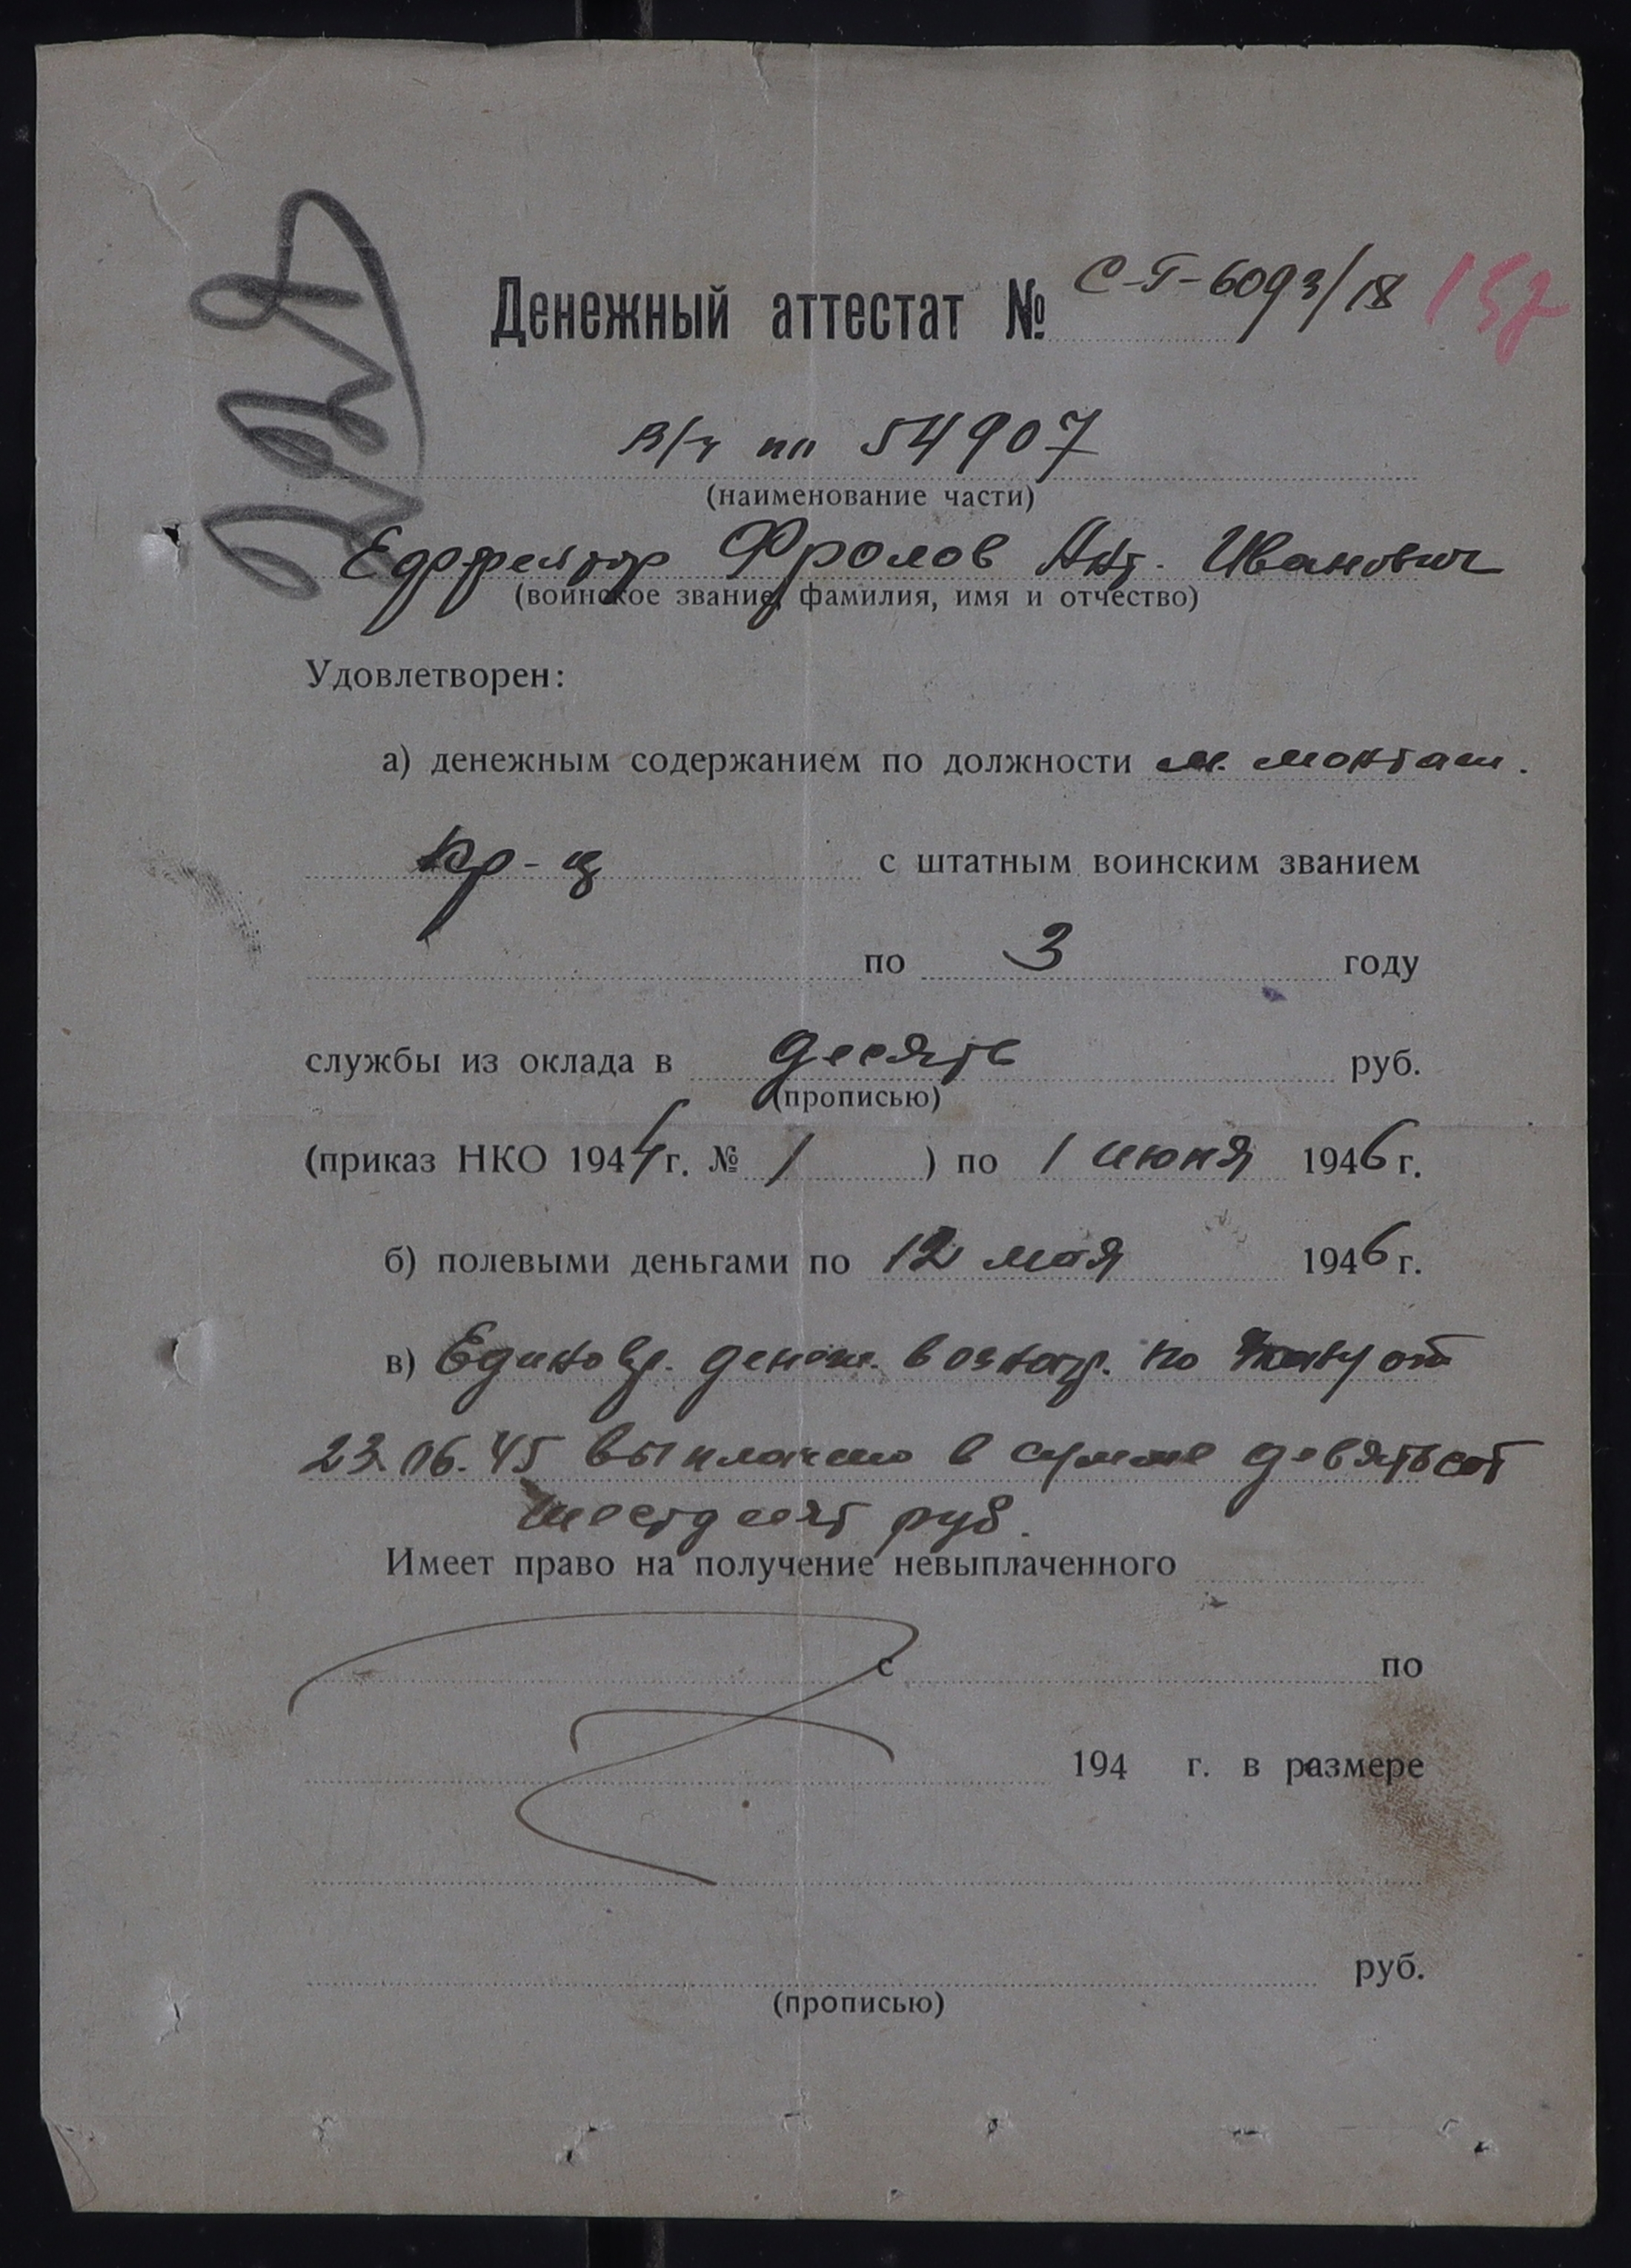 Денежный аттестат № С-Г-6093/18 157
в/ч пп 54907
(наименование части)
Ефрейтор Фролов Ант. Иванович
(воинское звание, фамилия, имя и отчество)
Удовлетворен:
а) денежным содержанием по должности м. монтаж.
кр-ц с штатным воинским званием
по 3 году
службы из оклада в десять руб.
(прописью)
(приказ НКО 1944 г. № 1 ) по 1 июня 1946 г.
б) полевыми деньгами по 12 мая 1946 г.
в) Единовр. денеж. вознагр. по от
23.06.45 выплачено в сумме девятьсот
шестдесят руб.
Имеет право на получение невыплаченного
с по
194 г. в размере
руб.
(прописью)